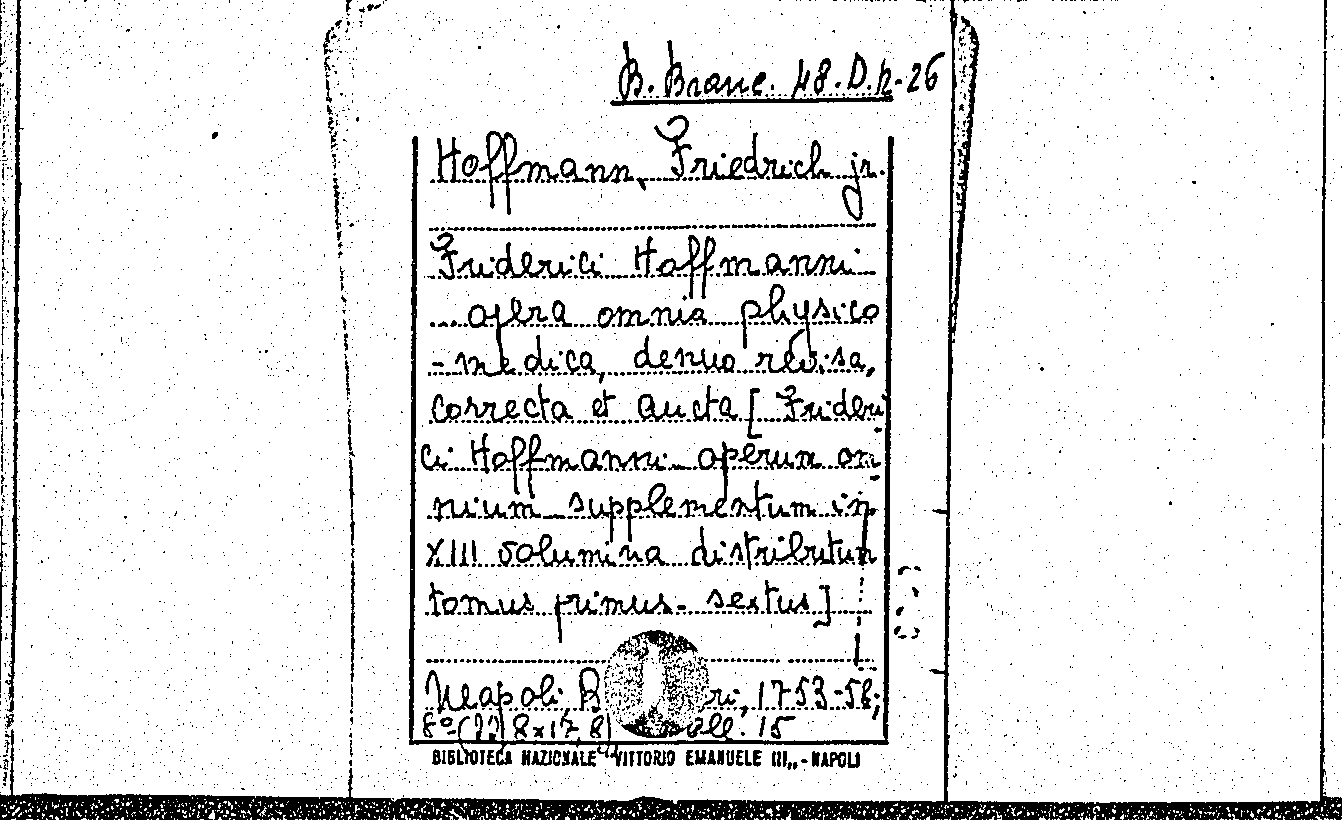 B. Branc. 48.D.12-26
Hoffmann, Friedrich jr.
Friderici Hoffmanni
... opera omnia physico
-medica, denuo revisa,
correcta et aucta [Frideri
ci Hoffmanni operum om
nium supplementum in
XIII volumina distributum
tomus primus- sextus]
Neapoli, 1753-58;
8° voll. 15
BIBLIOTECA NAZIONALE "VITTORIO EMANUELE III„ - NAPOLI